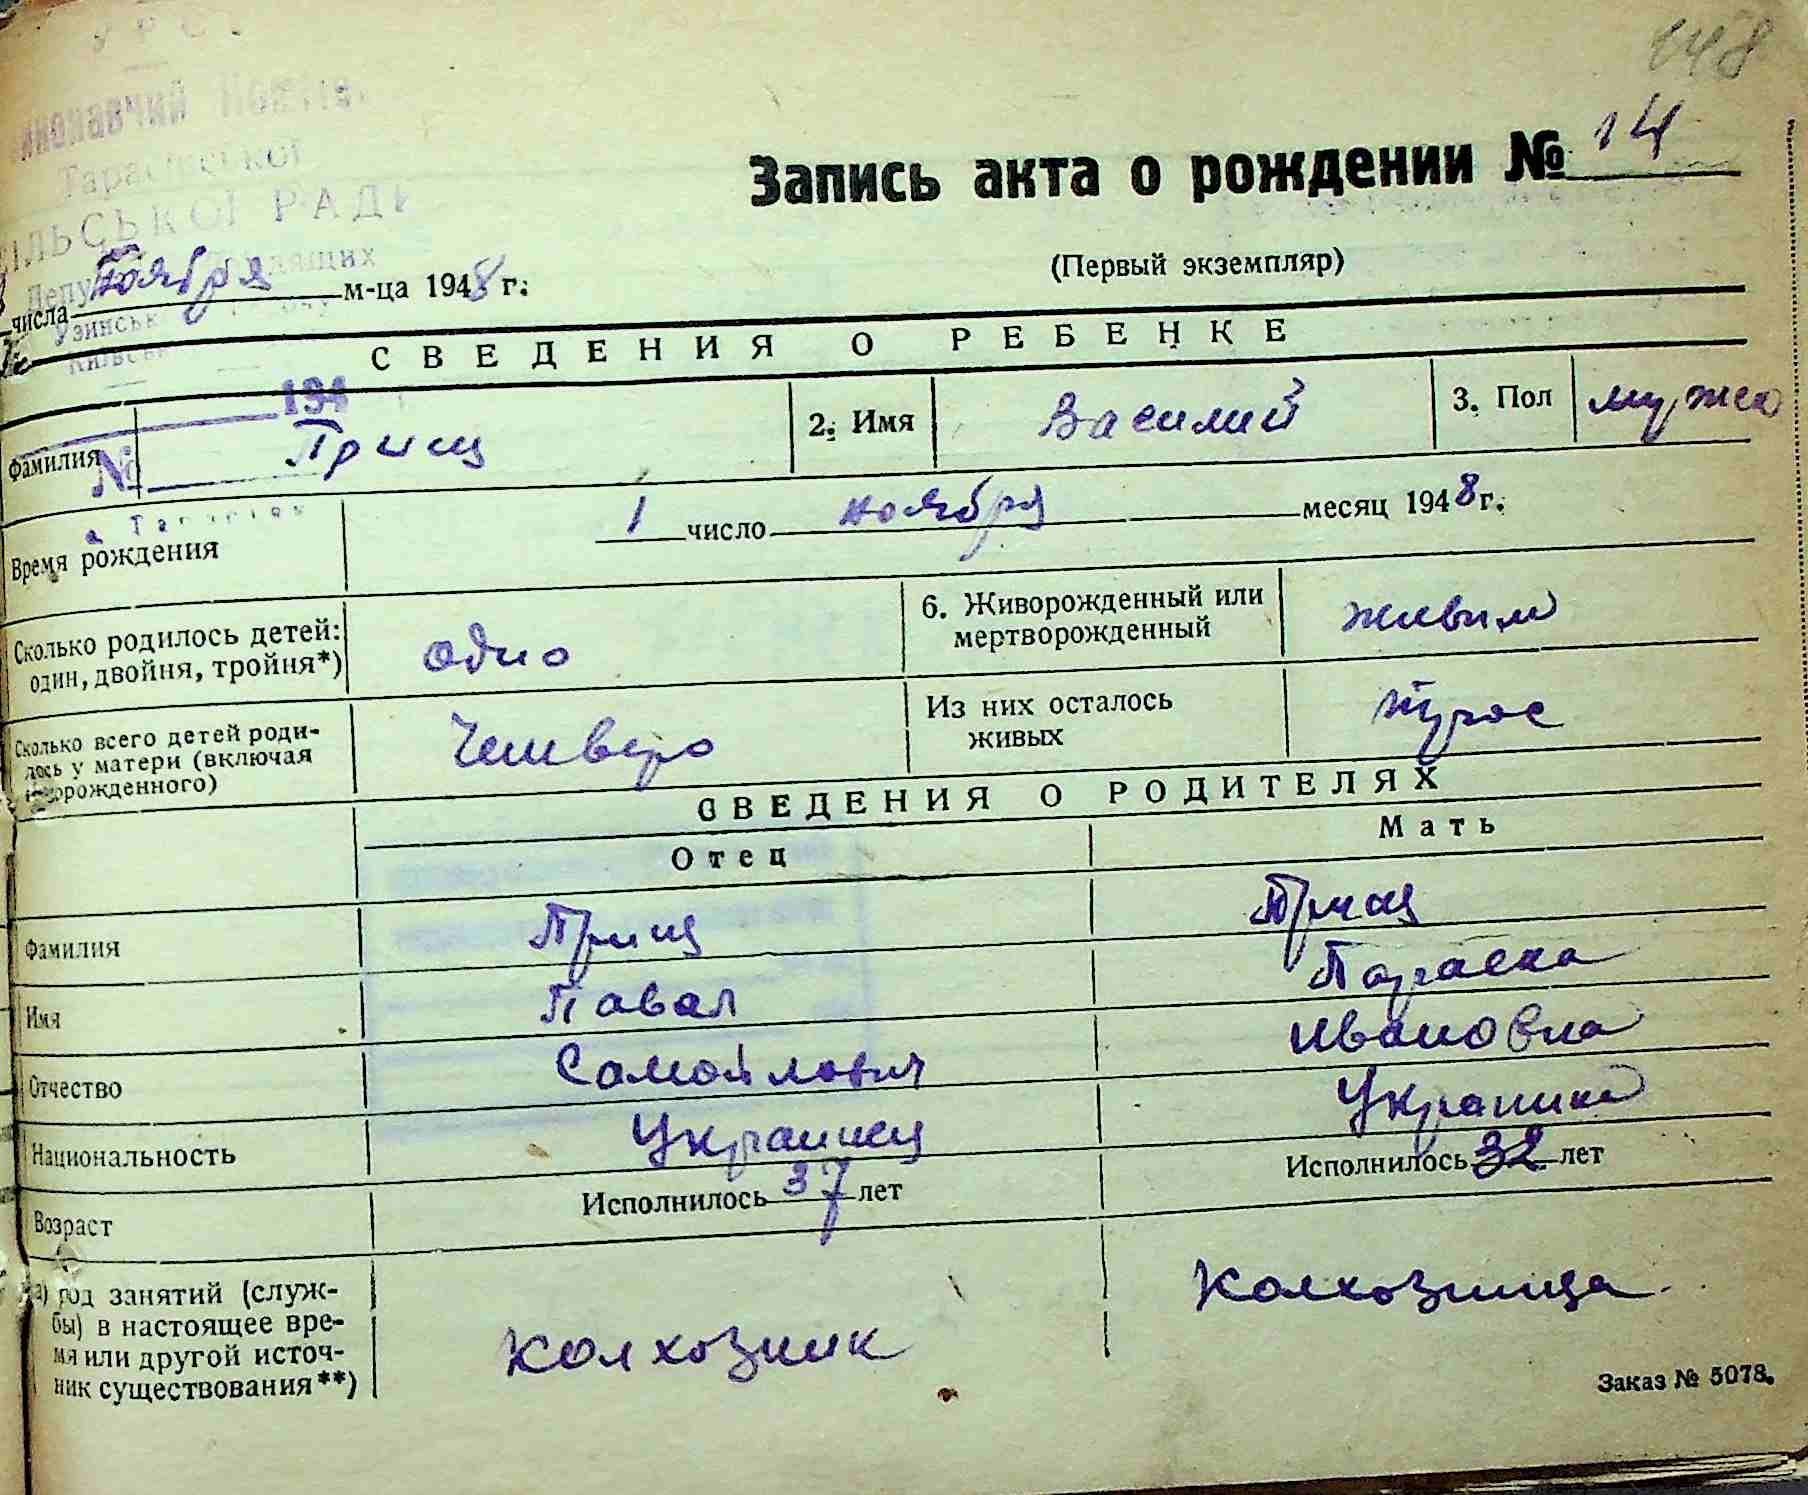 148
УРС
Тара
СІЛЬСЬКОЇ РАДИ
Депу
Узинськ
Запись акта о рождении № 14
числа ноября м-ца 1948 г.
(Первый экземпляр)
СВЕДЕНИЯ О РЕБЕНКЕ
194
№
Фамилия Приц 2. Имя Василий 3. Пол мужс
Время рождения 1 число ноября месяц 1948 г.
Сколько родилось детей: один, двойня, тройня*) одно 6. Живорожденный или мертворожденный живим
Сколько всего детей родилось у матери (включая рожденного) Четверо Из них осталось живых трое
СВЕДЕНИЯ О РОДИТЕЛЯХ
Отец Мать
Фамилия Приц Приц
Имя Павал Параска
Отчество Самойлович Ивановна
Национальность Украинец Украинка
Возраст Исполнилось 37 лет Исполнилось 32 лет
а) род занятий (служ-
бы) в настоящее вре-
мя или другой источ-
ник существования**) колхозник колхозница
Заказ № 5078.